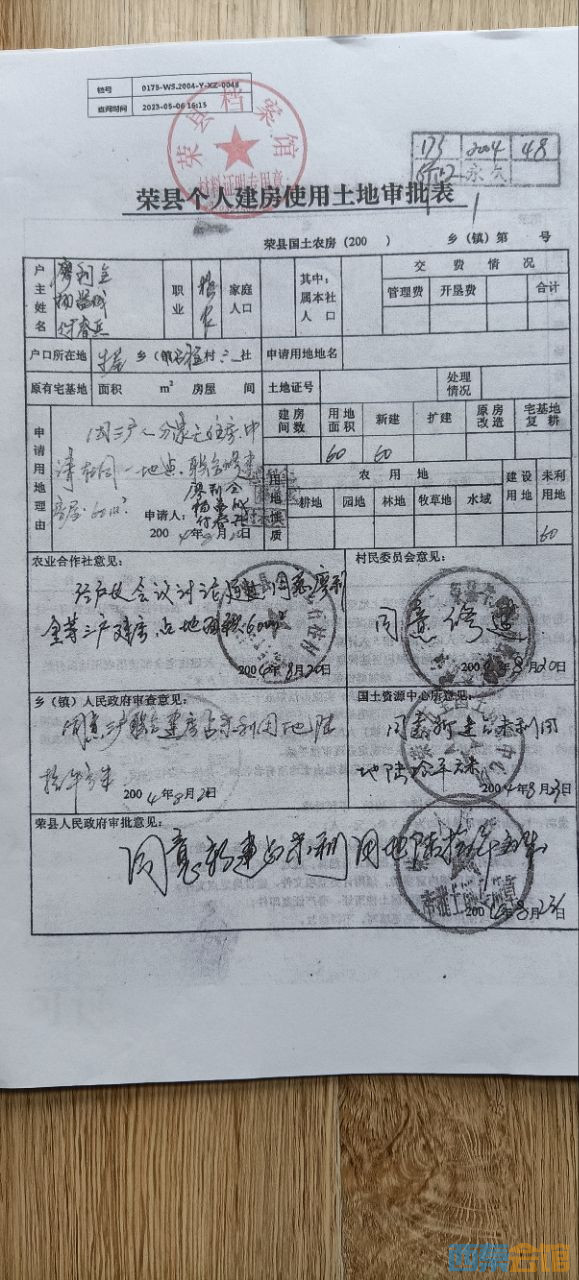 档号 0175-WS.2004-Y-XZ-0048
查阅时间 2023-05-06 16:15
荣县档案馆
材料证明专用章
175 2004 48
永久
荣县个人建房使用土地审批表
荣县国土农房(200 ) 乡(镇)第 号
户主姓名 廖利全 职业 务农 家庭人口 其中:属本社人口 交费情况
管理费 开垦费 合计
户口所在地 乡(镇) 村 社 申请用地地名
原有宅基地 面积 m² 房屋 间 土地证号 处理情况
申请用地理由
因三户人分家无住房,申
请在同一地点,联合修建
房屋.60m².
廖利全
申请人:
2004年8月20日
建房间数 用地面积 新建 扩建 原房改造 宅基地复耕
60 60
用地性质 农用地 建设用地 未利用地
耕地 园地 林地 牧草地 水域
60
农业合作社意见:
经户代会议讨论通过同意廖利
全等三户建房占地面积60m²
2004年8月20日
村民委员会意见:
同意修建
2004年8月20日
乡(镇)人民政府审查意见:
同意三户联合建房占未利用地陆
拾平方米
2004年8月2 日
国土资源中心所意见:
同意新建占未利用
地陆拾平方米
2004年8月23日
荣县人民政府审批意见:
同意新建占未利用地陆拾平方米
2004年8月23日